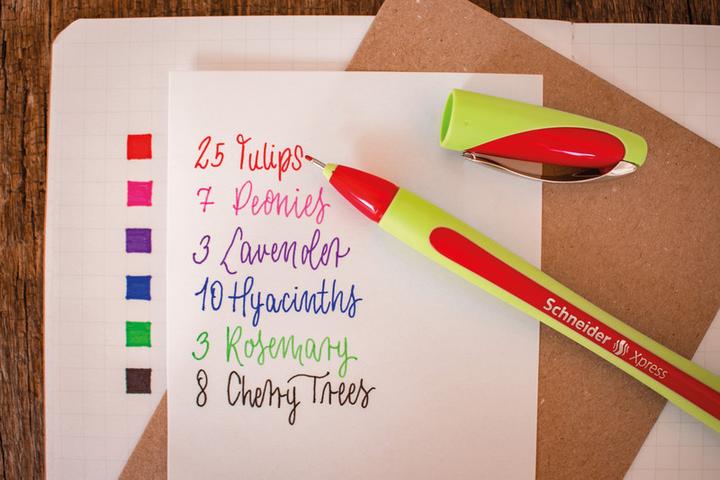 25 Tulips
7 Peonies
3 Lavender
10 Hyacinths
3 Rosemary
8 Cherry Trees
Schneider Xpress